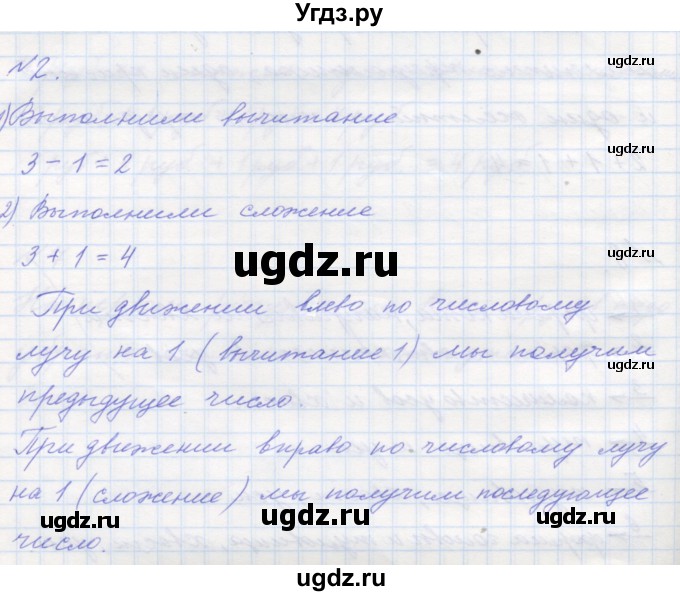 Угдз.ру
ugdz.ru ugdz.ru
№2.
1) Выполнили вычитание
ugdz.ru ugdz.ru
3 - 1 = 2
2) Выполнили сложение
3 + 1 = 4
ugdz.ru ugdz.ru
При движении влево по числовому
ugdz.ru ugdz.ru
лучу на 1 (вычитание 1) мы получим
предыдущее число.
ugdz.ru ugdz.ru
При движении вправо по числовому лучу
на 1 (сложение) мы получим последующее
ugdz.ru ugdz.ru ugdz.ru
число.
ugdz.ru